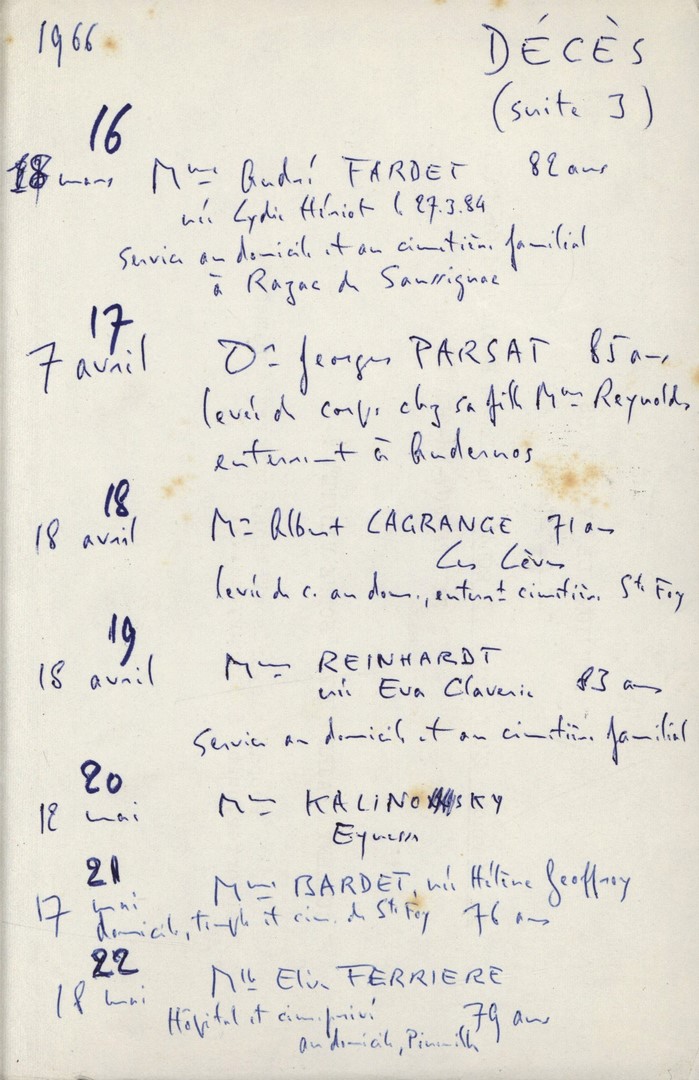 1966
DÉCÈS
(suite 3)
16
18 mars Mme André FARDET 82 ans
née Lydie Hériot l 27.3.84
Service au domicile et au cimetière familial
à Razac de Saussignac
17
7 avril Dr Georges PARSAT 85 ans
levée de corps chez sa fille Mme Reynolds
enterrement à Andernos
18
18 avril Mr Albert LAGRANGE 71 ans
Les Lèves
levée de c. au dom., enterrt cimetière Ste Foy
19
18 avril Mme REINHARDT
née Eva Claverie 83 ans
Service au domicile et au cimetière familial
20
12 mai Mme KALINOWSKY
Eynesse
21
17 mai Mme BARDET, née Hélène Geoffroy
domicile, temple et cim. de Ste Foy 76 ans
22
18 mai Mlle Elise FERRIERE
Hôpital et cim. privé 79 ans
au domicile,